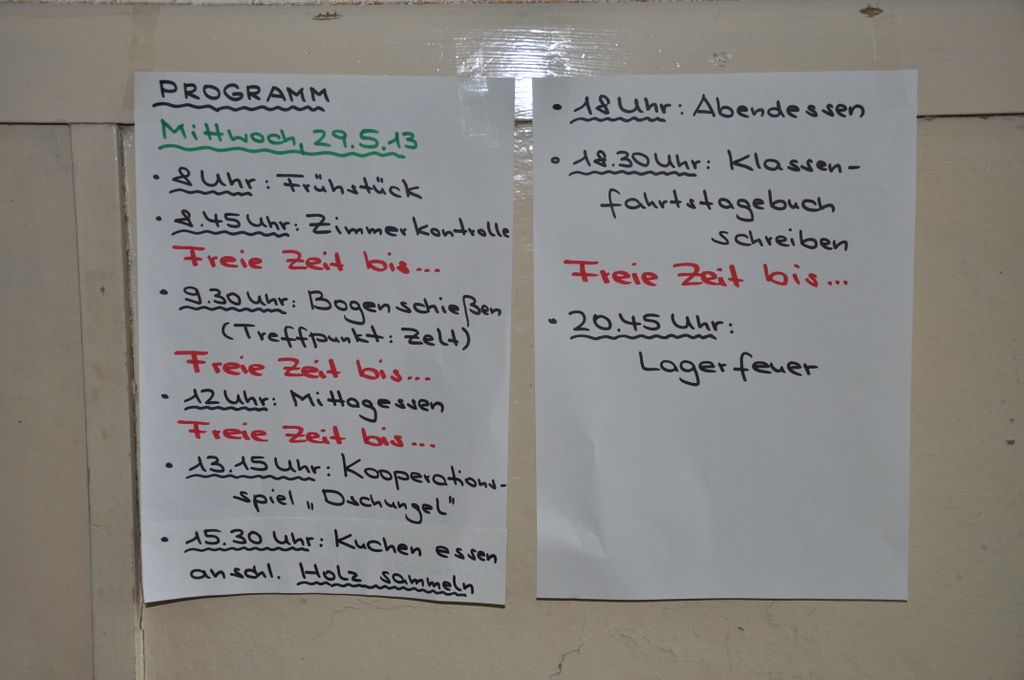 PROGRAMM
Mittwoch, 29.5.13
• 8 Uhr: Frühstück
• 8.45 Uhr: Zimmerkontrolle
Freie Zeit bis...
• 9.30 Uhr: Bogenschießen
(Treffpunkt: Zelt)
Freie Zeit bis...
• 12 Uhr: Mittagessen
Freie Zeit bis...
• 13.15 Uhr: Kooperations-
spiel „Dschungel"
• 15.30 Uhr: Kuchen essen
anschl. Holz sammeln
• 18 Uhr: Abendessen
• 18.30 Uhr: Klassen-
fahrtstagebuch
schreiben
Freie Zeit bis...
• 20.45 Uhr:
Lagerfeuer